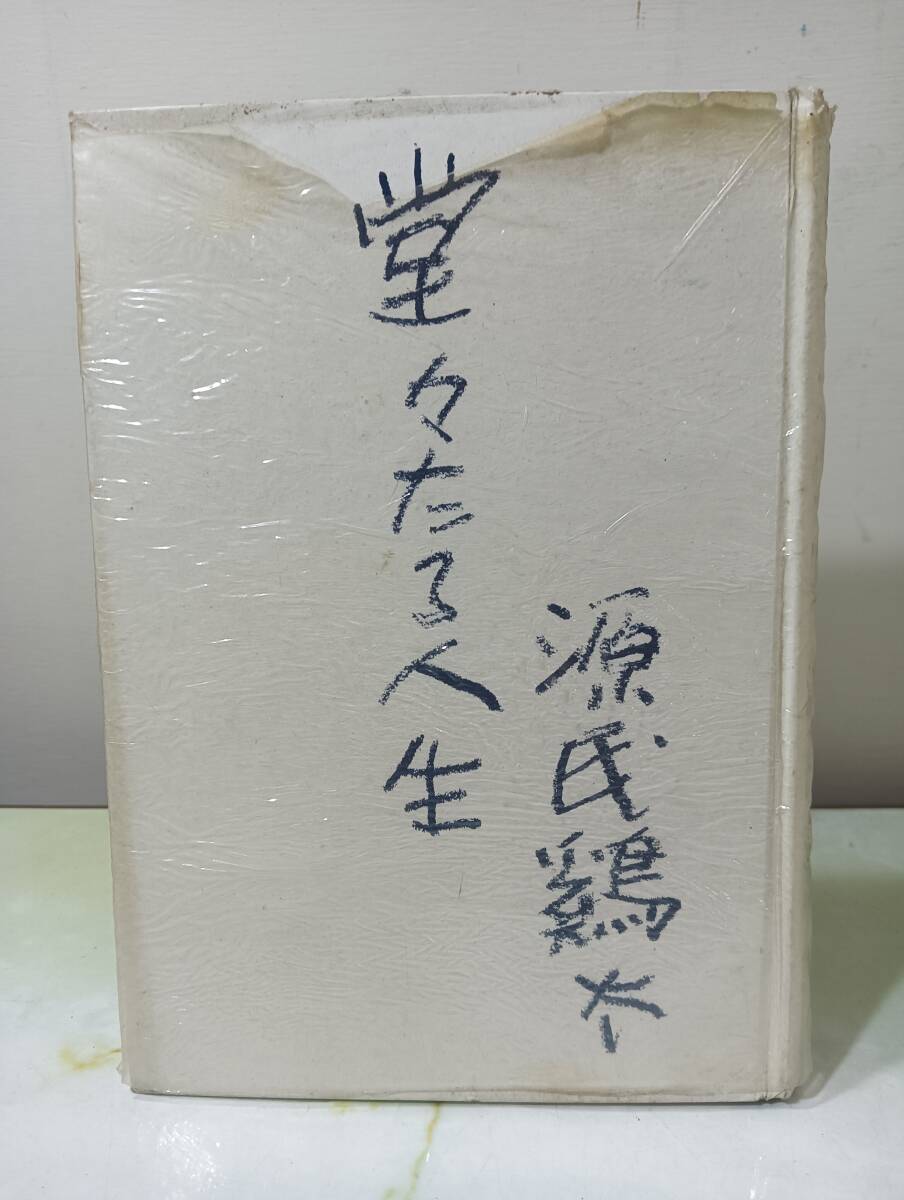 源氏鶏太
堂々たる人生